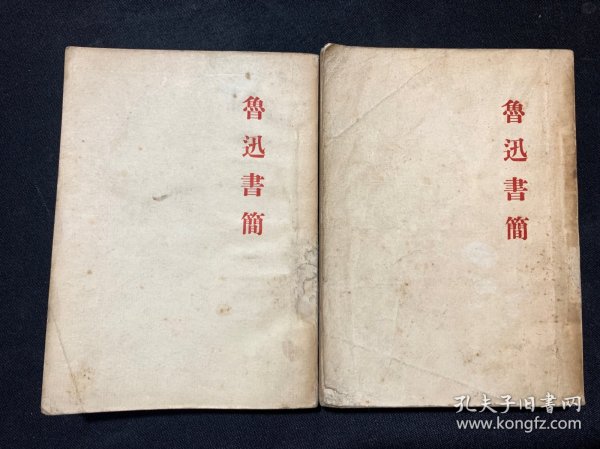 魯迅書簡
魯迅書簡
孔夫子旧书网
www.kongfz.com